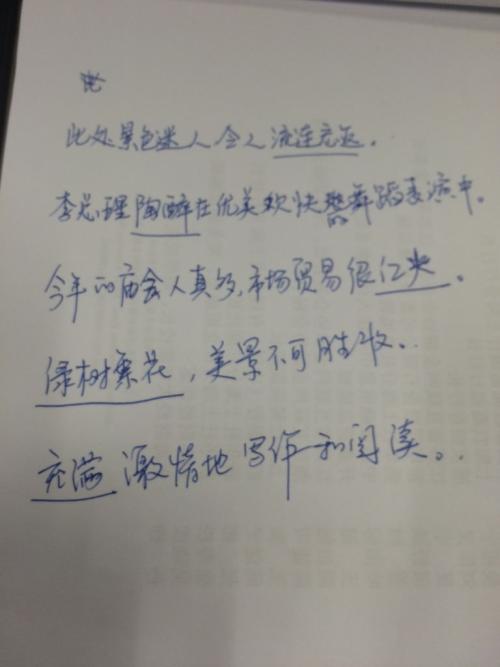 此处景色迷人令人流连忘返。
李总理陶醉在优美欢快的舞蹈表演中。
今年的庙会人真多,市场贸易很红火。
绿树繁花,美景不可胜收。
充满激情地写作和阅读。